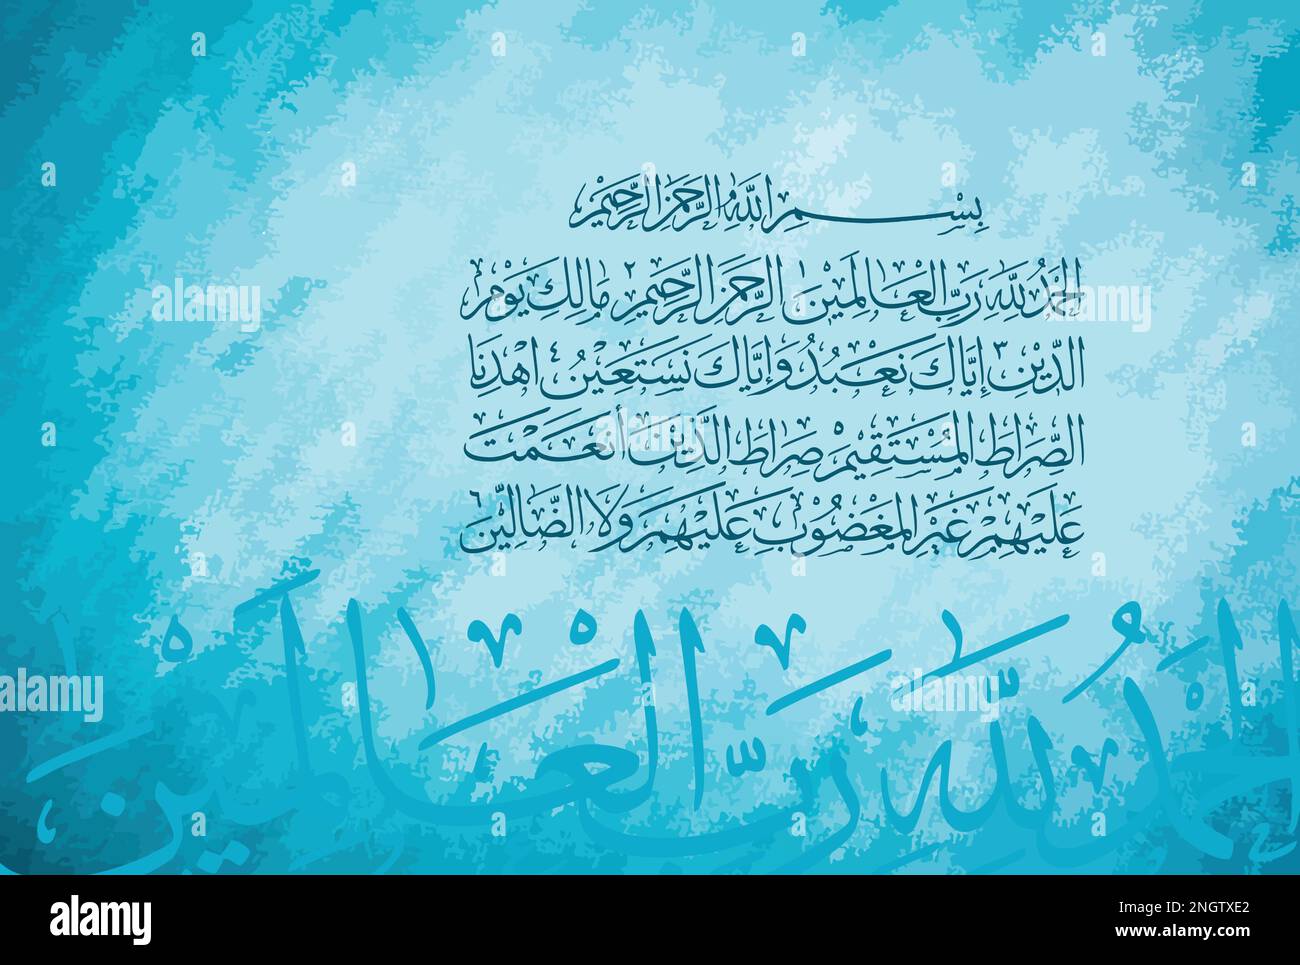 بِسْمِ اللَّهِ الرَّحْمَنِ الرَّحِيمِ
الْحَمْدُ لِلَّهِ رَبِّ الْعَالَمِيْنَ ١ الرَّحْمَنِ الرَّحِيمِ ٢ مَالِكِ يَوْمِ
الدِّيْنِ ٣ إِيَّاكَ نَعْبُدُ وَإِيَّاكَ نَسْتَعِيْنُ ٤ اهْدِنَا
الصِّرَاطَ الْمُسْتَقِيْمَ ٥ صِرَاطَ الَّذِيْنَ أَنْعَمْتَ
عَلَيْهِمْ غَيْرِ الْمَغْضُوْبِ عَلَيْهِمْ وَلَا الضَّالِّيْنَ ٦
الْحَمْدُ لِلَّهِ رَبِّ الْعَالَمِيْنَ ١
alamy
Image ID: 2NGTXE2
www.alamy.com